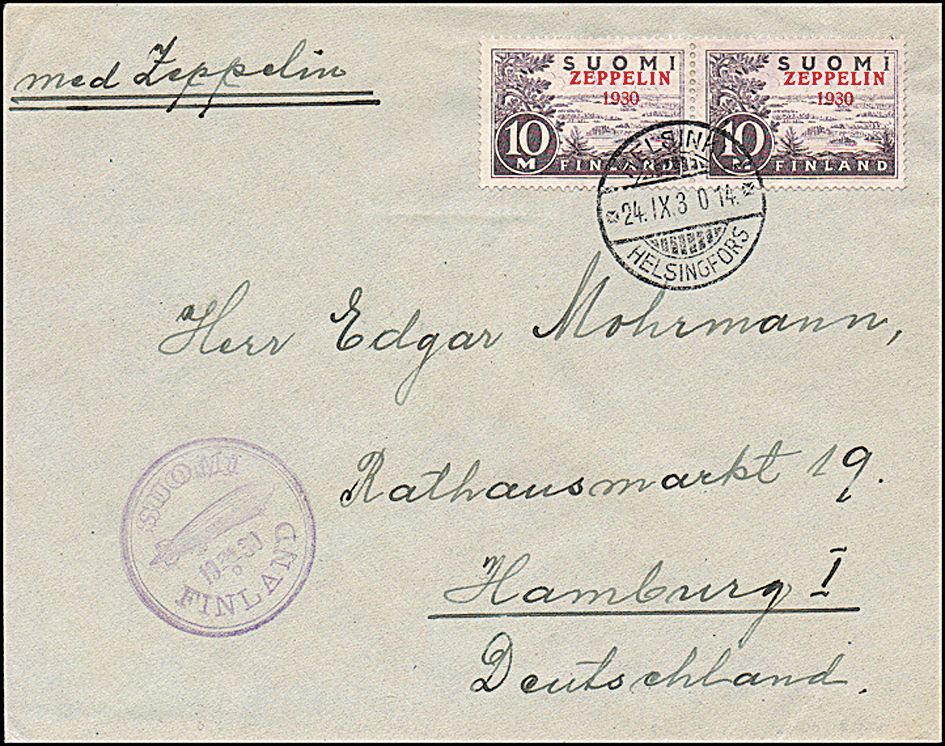 med Zeppelin
SUOMI
ZEPPELIN
1930
10 M
FINLAND
SUOMI
ZEPPELIN
1930
10 M
FINLAND
HELSINKI
24.IX.30 14.
HELSINGFORS
Herr Edgar Mohrmann,
Rathausmarkt 19.
Hamburg I
Deutschland.
SUOMI
FINLAND